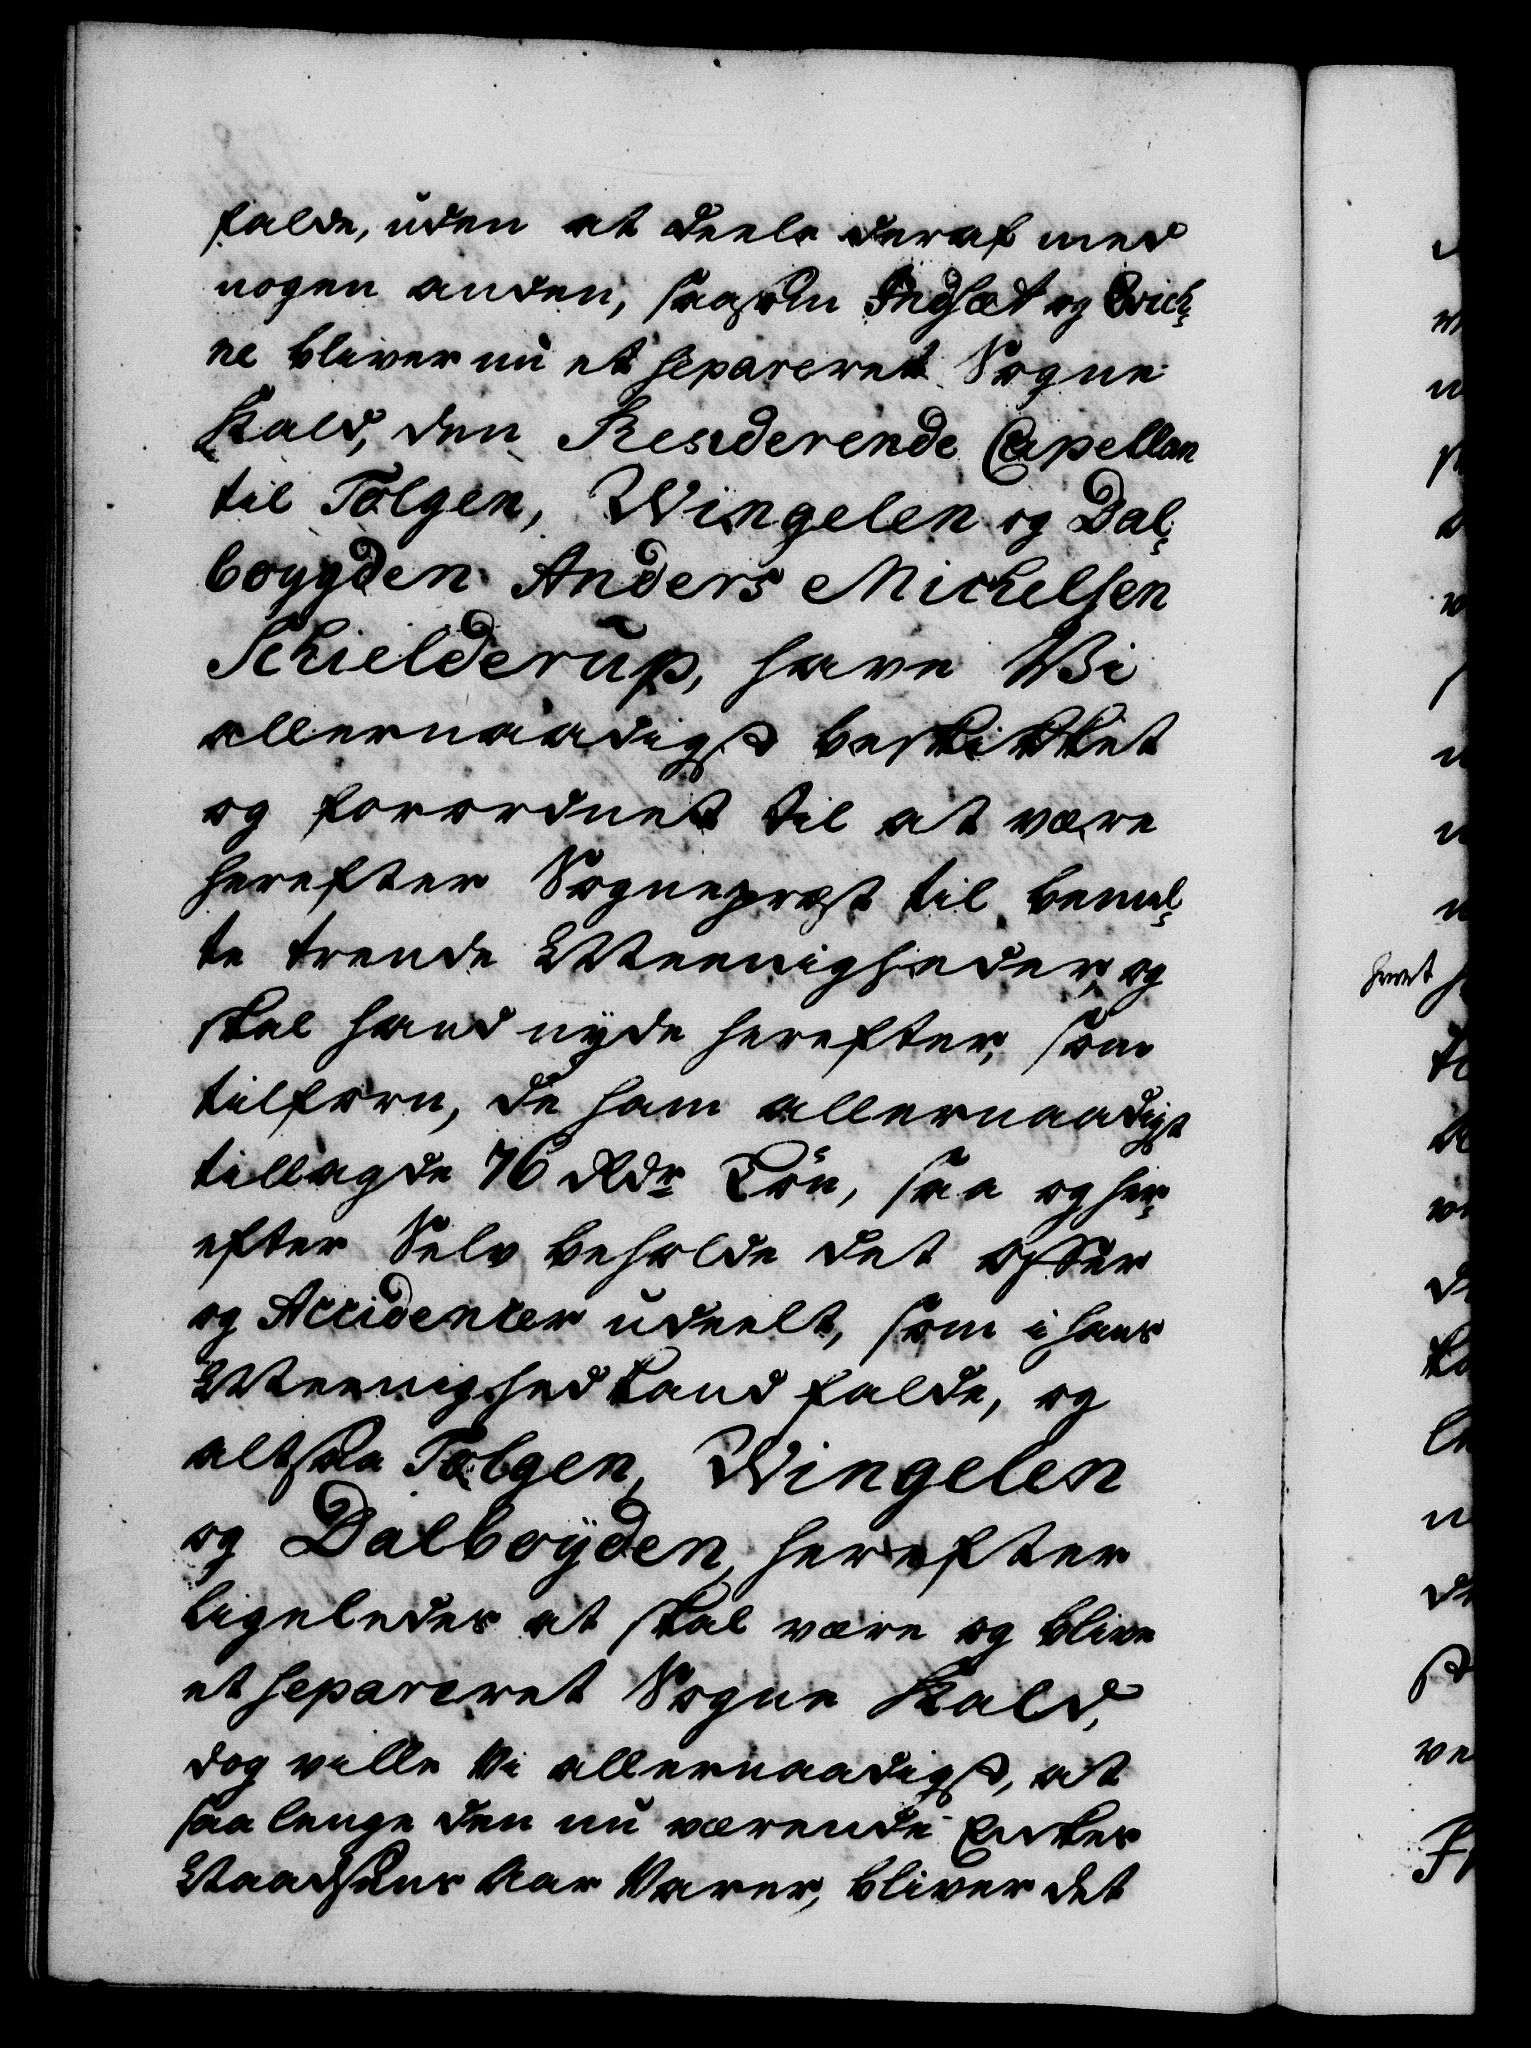 falde, uden at deele deraf med
nogen anden, saasom Indset og Erich-
ne bliver nu et separeret Sogne
Kald, den Residerende Capellan
til Tolgen, Wingelen og Dal-
boygden Anders Michelsen
Schielderup, have Vi
allernaadigst beskikket
og forordnet til at være
herefter Sognepræst til bemel-
te trende Meenigheder, og
skal hand nyde herefter, som
tilforn, de ham allernaadigst
tillagde 76 Rdr Løn, saa og her-
efter Selv beholde det offer
og Accidenter udeelt, som i hans
Meenighed kand falde, og
altsaa Tolgen, Wingelen
og Dalboyden, herefter
ligeledes at skal være og blive
et separeret Sogne Kald,
dog ville Vi allernaadigst, at
saa lenge den nu værende Enkes
Naadsens Aar Varer, bliver det